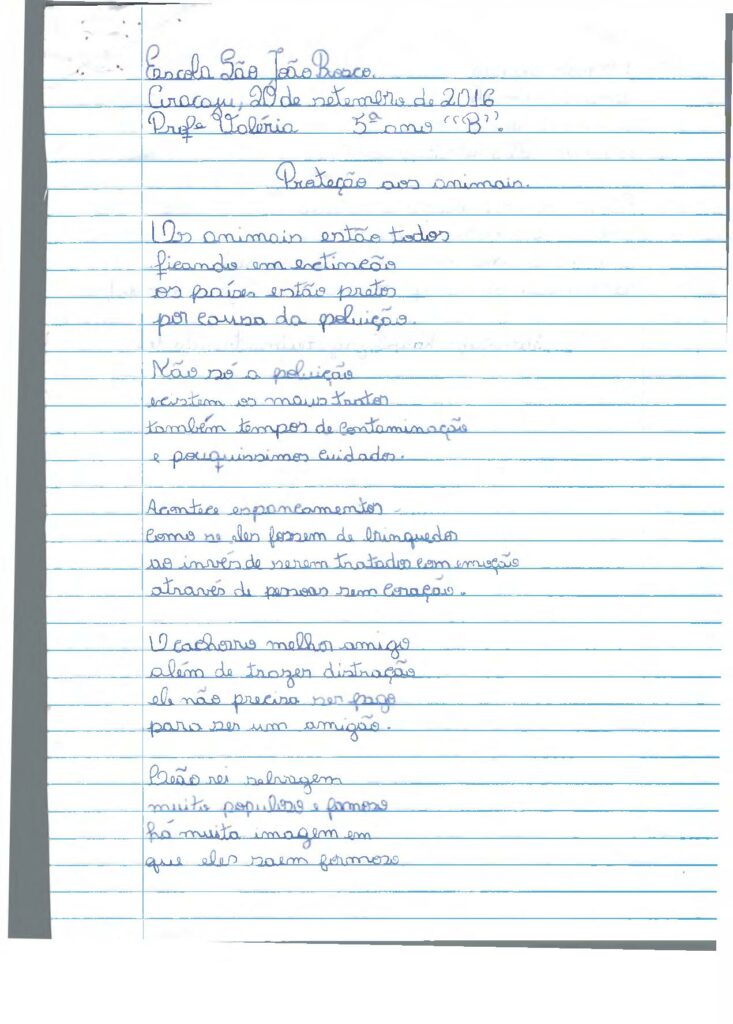 Escola São João Bosco.
Aracaju, 20 de setembro de 2016
Profª Valéria 5º ano "B".
Proteção aos animais.
Os animais estão todos
ficando em extinção
os países estão pretos
por causa da poluição.
Não só a poluição
existem os maus tratos
também tempos de contaminação
e pouquissimos cuidados.
Acontece espancamentos
como se eles fossem de brinquedos
ao invés de serem tratados com emoção
através de pessoas sem coração.
O cachorro melhor amigo
além de trazer distração
ele não precisa ser pago
para ser um amigão.
Leão rei selvagem
muito populoso e famoso
há muita imagem em
que eles saem formoso